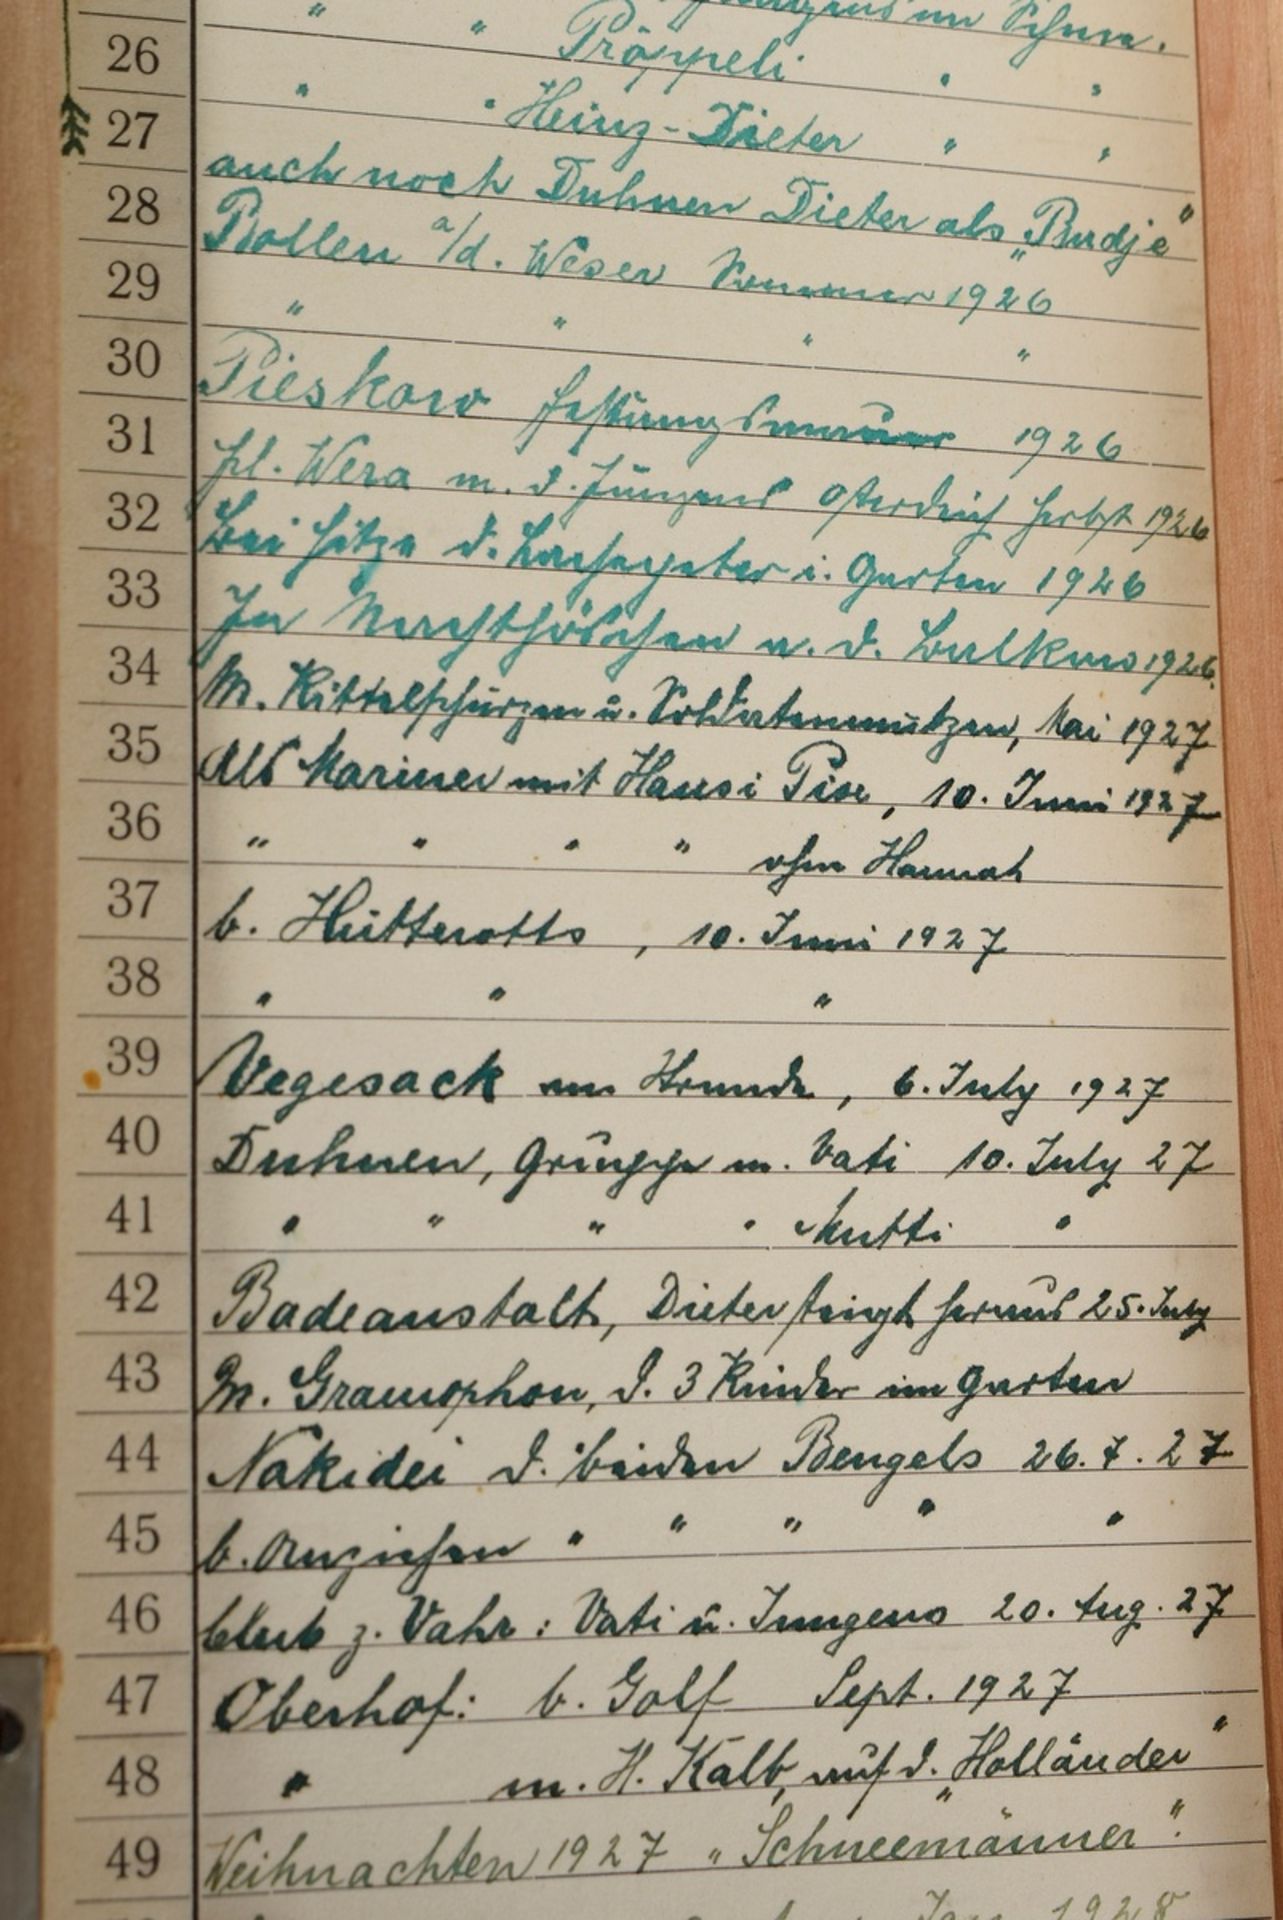 im Schnee.
26 " " Pröppeli " "
27 " " Heinz-Dieter " "
auch noch Duhnen Dieter als „Budje"
28 Bollen a/d. Weser Sommer 1926
29 " " " "
30 Pieskow Festungsmauer 1926
31 Frl. Wera m. d. Jungens Osterdeich Herbst 1926
32 Bei Hitze d. i. Garten 1926
33 In Nachthöschen a. d. Balkon 1926.
34 M. Kittelschürzen u. Soldatenmützen, Mai 1927
35 Als Mariner mit Hausi Pise, 10. Juni 1927
36 " " " " ohne Hannah
37 b. Hütterotts, 10. Juni 1927
38 " " "
39 Vegesack am Strande, 6. July 1927
40 Duhnen, Gruppe m. Vati 10. July 27
41 " " " " Mutti "
42 Badeanstalt, Dieter steigt heraus 25. July
43 M. Gramophon, d. 3 Kinder im Garten
44 Nakidei d. beiden Bengels 26.7.27
45 b. Anziehen " " " " "
46 Club z. Vahr: Vati u. Jungens 20. Aug. 27
47 Oberhof: b. Golf Sept. 1927
48 " m. H. Kalb, auf d. „Holländer"
49 Weihnachten 1927 „Schneemänner".
Jan. 1928